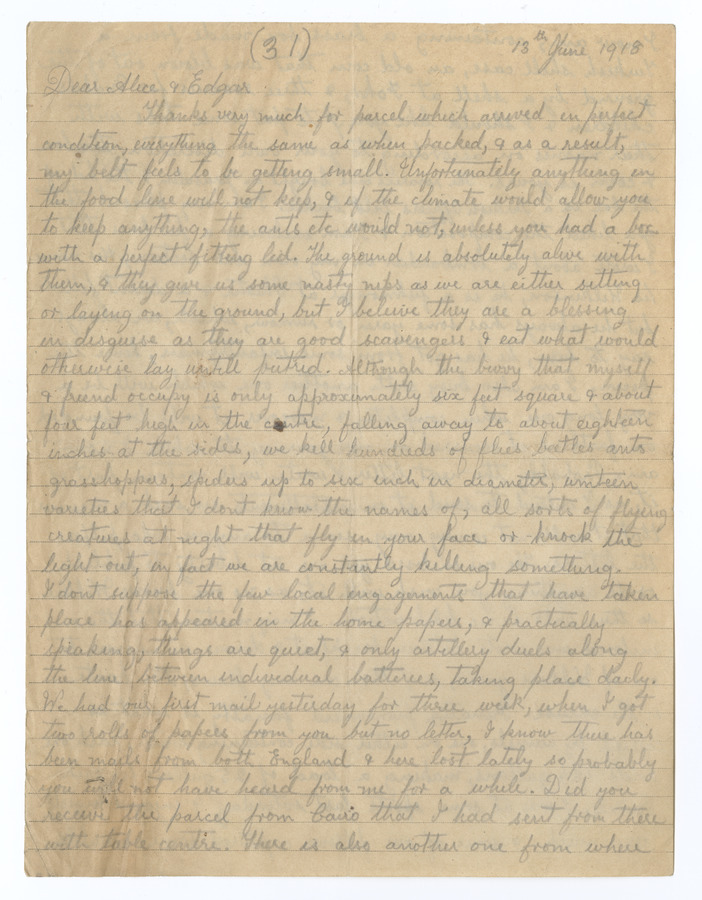 (31)
13th June 1918
Dear Alice & Edgar
Thanks very much for parcel which arrived in perfect
condition, everything the same as when packed, & as a result,
my belt feels to be getting small. Unfortunately anything in
the food line will not keep, & if the climate would allow you
to keep anything, the ants etc would not, unless you had a box
with a perfect fitting lid. The ground is absolutely alive with
them, & they give us some nasty nips as we are either sitting
or laying on the ground, but I beleive they are a blessing
in disguise as they are good scavengers & eat what would
otherwise lay untill putrid. Although the bivvy that myself
& friend occupy is only approximately six feet square & about
four feet high in the centre, falling away to about eighteen
inches at the sides, we kill hundreds of flies beetles ants
grasshoppers, spiders up to six inch in diameter, umteen
varieties that I dont know the names of, all sorts of flying
creatures at night that fly in your face or knock the
light out, in fact we are constantly killing something.
I dont suppose the few local engagements that have taken
place has appeared in the home papers, & practically
speaking, things are quiet, & only artillery duels along
the line between individual batteries, taking place daily.
We had our first mail yesterday for three week, when I got
two rolls of papers from you but no letter, I know there has
been mails from both England & here lost lately so probably
you will not have heard from me for a while. Did you
receive the parcel from Cairo that I had sent from there
with table centre. There is also another one from where